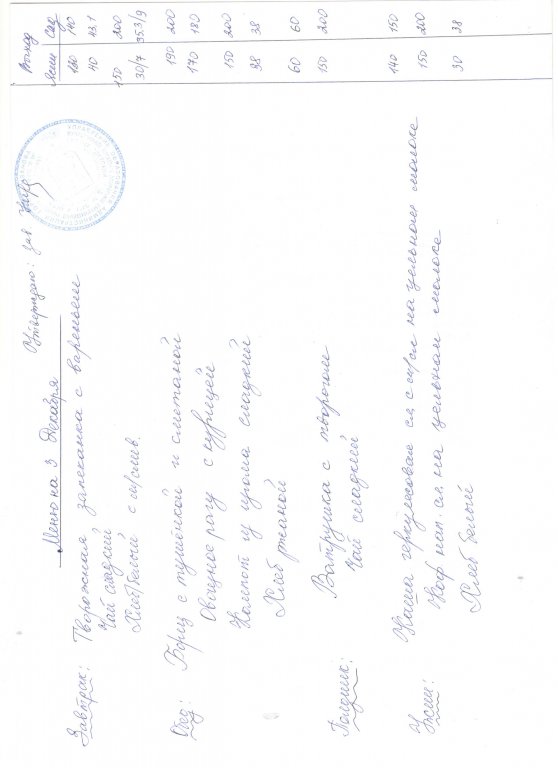 Утверждаю: Зав
Меню на 3 Декабря
Выход
Ясли Сад
Завтрак: Творожная запеканка с вареньем 130 140
40 43.1
Чай сладкий 150 200
Хлеб белый с м/слив. 30/7 35.3/9
Обед: Борщ с тушёнкой и сметаной 190 200
Овощное рагу с курицей 170 180
Компот из изюма сладкий 150 200
Хлеб ржаной 38 38
60 60
Полдник: Ватрушка с творогом
Чай сладкий 150 200
Ужин: Каша геркулесовая сл. с м/сл на цельном молоке 140 150
Коф. нап. сл. на цельном молоке 150 200
Хлеб белый 30 38